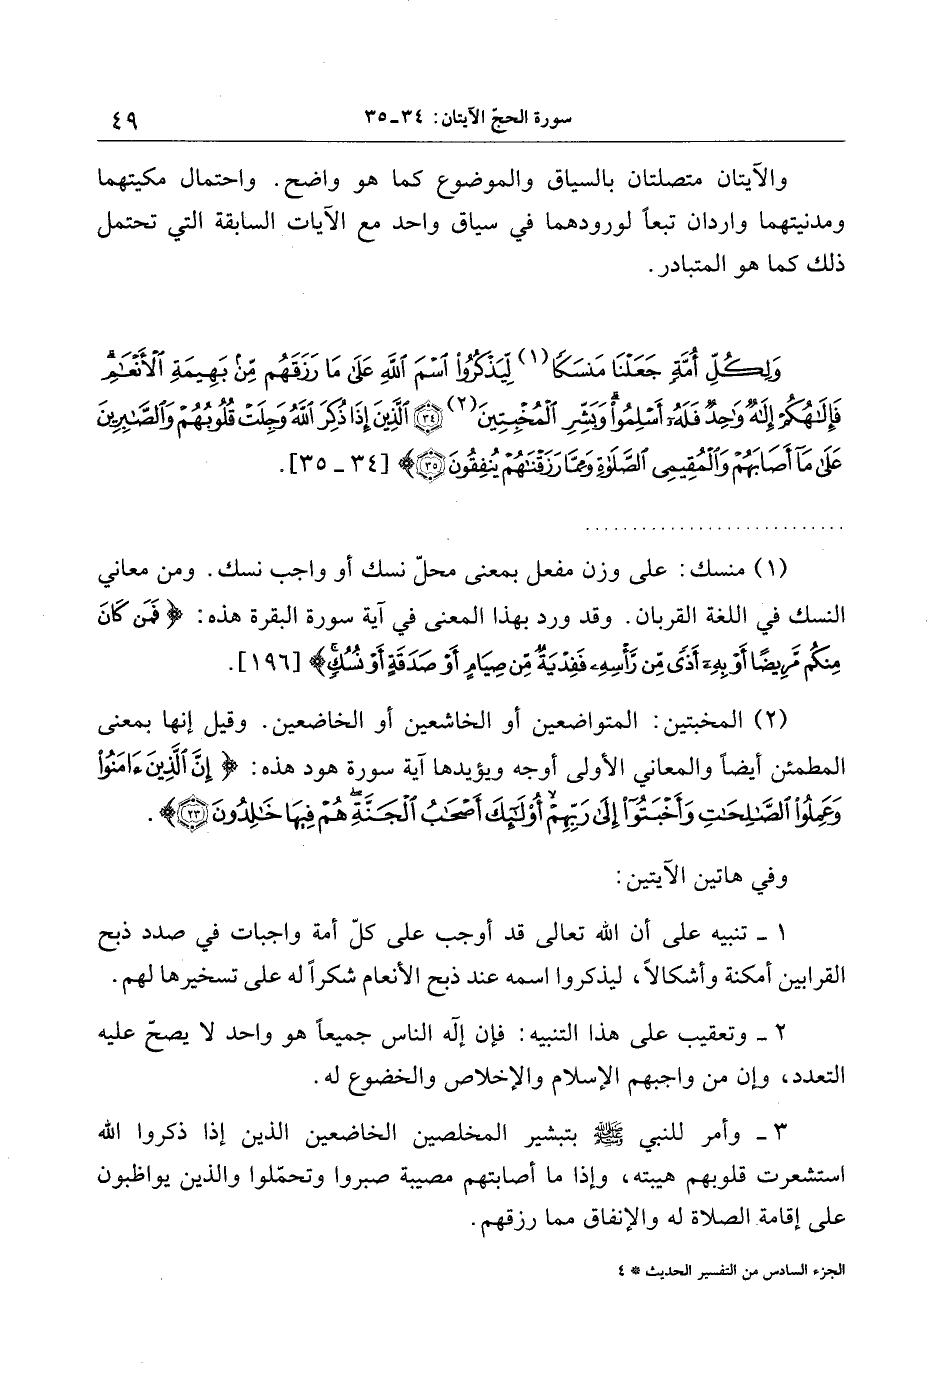 سورة الحجّ الآيتان: ٣٤ـ٣٥ ٤٩
والآيتان متصلتان بالسياق والموضوع كما هو واضح. واحتمال مكيتهما
ومدنيتهما واردان تبعاً لورودهما في سياق واحد مع الآيات السابقة التي تحتمل
ذلك كما هو المتبادر.
وَلِكُلِّ أُمَّةٍ جَعَلْنَا مَنسَكًا(١) لِّيَذْكُرُوا۟ ٱسْمَ ٱللَّهِ عَلَىٰ مَا رَزَقَهُم مِّنۢ بَهِيمَةِ ٱلْأَنْعَٰمِۗ
فَإِلَٰهُكُمْ إِلَٰهٌ وَٰحِدٌ فَلَهُۥٓ أَسْلِمُوا۟ۗ وَبَشِّرِ ٱلْمُخْبِتِينَ(٢) ﴿٣٤﴾ ٱلَّذِينَ إِذَا ذُكِرَ ٱللَّهُ وَجِلَتْ قُلُوبُهُمْ وَٱلصَّٰبِرِينَ
عَلَىٰ مَآ أَصَابَهُمْ وَٱلْمُقِيمِى ٱلصَّلَوٰةِ وَمِمَّا رَزَقْنَٰهُمْ يُنفِقُونَ ﴿٣٥﴾﴾ [٣٤ ـ ٣٥].
(١) منسك: على وزن مفعل بمعنى محلّ نسك أو واجب نسك. ومن معاني
النسك في اللغة القربان. وقد ورد بهذا المعنى في آية سورة البقرة هذه: ﴿فَمَن كَانَ
مِنكُم مَّرِيضًا أَوْ بِهِۦٓ أَذًى مِّن رَّأْسِهِۦ فَفِدْيَةٌ مِّن صِيَامٍ أَوْ صَدَقَةٍ أَوْ نُسُكٍۚ﴾ [١٩٦].
(٢) المخبتين: المتواضعين أو الخاشعين أو الخاضعين. وقيل إنها بمعنى
المطمئن أيضاً والمعاني الأولى أوجه ويؤيدها آية سورة هود هذه: ﴿إِنَّ ٱلَّذِينَ ءَامَنُوا۟
وَعَمِلُوا۟ ٱلصَّٰلِحَٰتِ وَأَخْبَتُوٓا۟ إِلَىٰ رَبِّهِمْ أُو۟لَٰٓئِكَ أَصْحَٰبُ ٱلْجَنَّةِۖ هُمْ فِيهَا خَٰلِدُونَ ﴿٢٣﴾﴾.
وفي هاتين الآيتين:
١ ـ تنبيه على أن الله تعالى قد أوجب على كلّ أمة واجبات في صدد ذبح
القرابين أمكنة وأشكالاً، ليذكروا اسمه عند ذبح الأنعام شكراً له على تسخيرها لهم.
٢ ـ وتعقيب على هذا التنبيه: فإن إلٰه الناس جميعاً هو واحد لا يصحّ عليه
التعدد، وإن من واجبهم الإسلام والإخلاص والخضوع له.
٣ ـ وأمر للنبي ﷺ بتبشير المخلصين الخاضعين الذين إذا ذكروا الله
استشعرت قلوبهم هيبته، وإذا ما أصابتهم مصيبة صبروا وتحمّلوا والذين يواظبون
على إقامة الصلاة له والإنفاق مما رزقهم.
الجزء السادس من التفسير الحديث * ٤